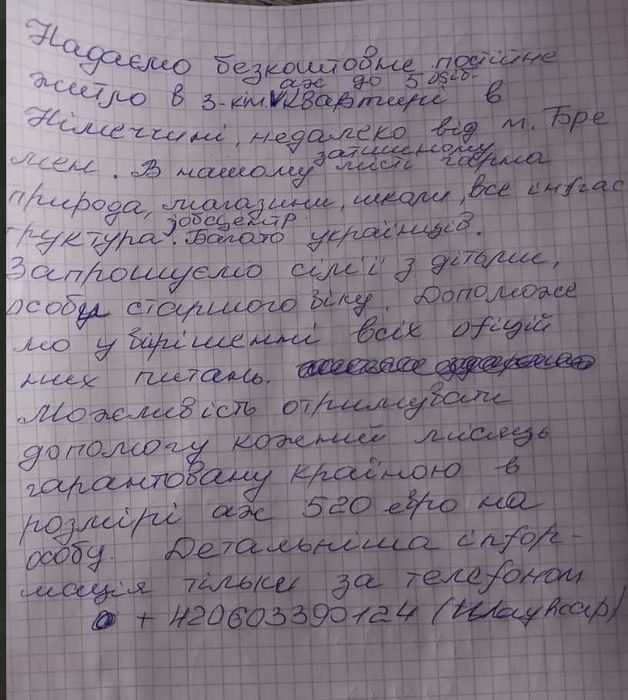 Надаємо безкоштовне постійне
аж до 5 осіб.
житло в 3-кім. квартирі в
Німеччині, недалеко від м. Бре
затишному
мен. В нашому місті гарна
природа, магазини, школи, все інфрас
Jobcцентр
труктура. Багато українців.
Запрошуємо сім'ї з дітьми,
особи старшого віку. Допоможе
мо у вірішенні всіх офіцій
них питань.
Можливість отримувати
допомогу кожний місяць
гарантовану країною в
розмірі аж 520 євро на
особу. Детальніша інфор-
мація тільки за телефоном
+ 420603390124